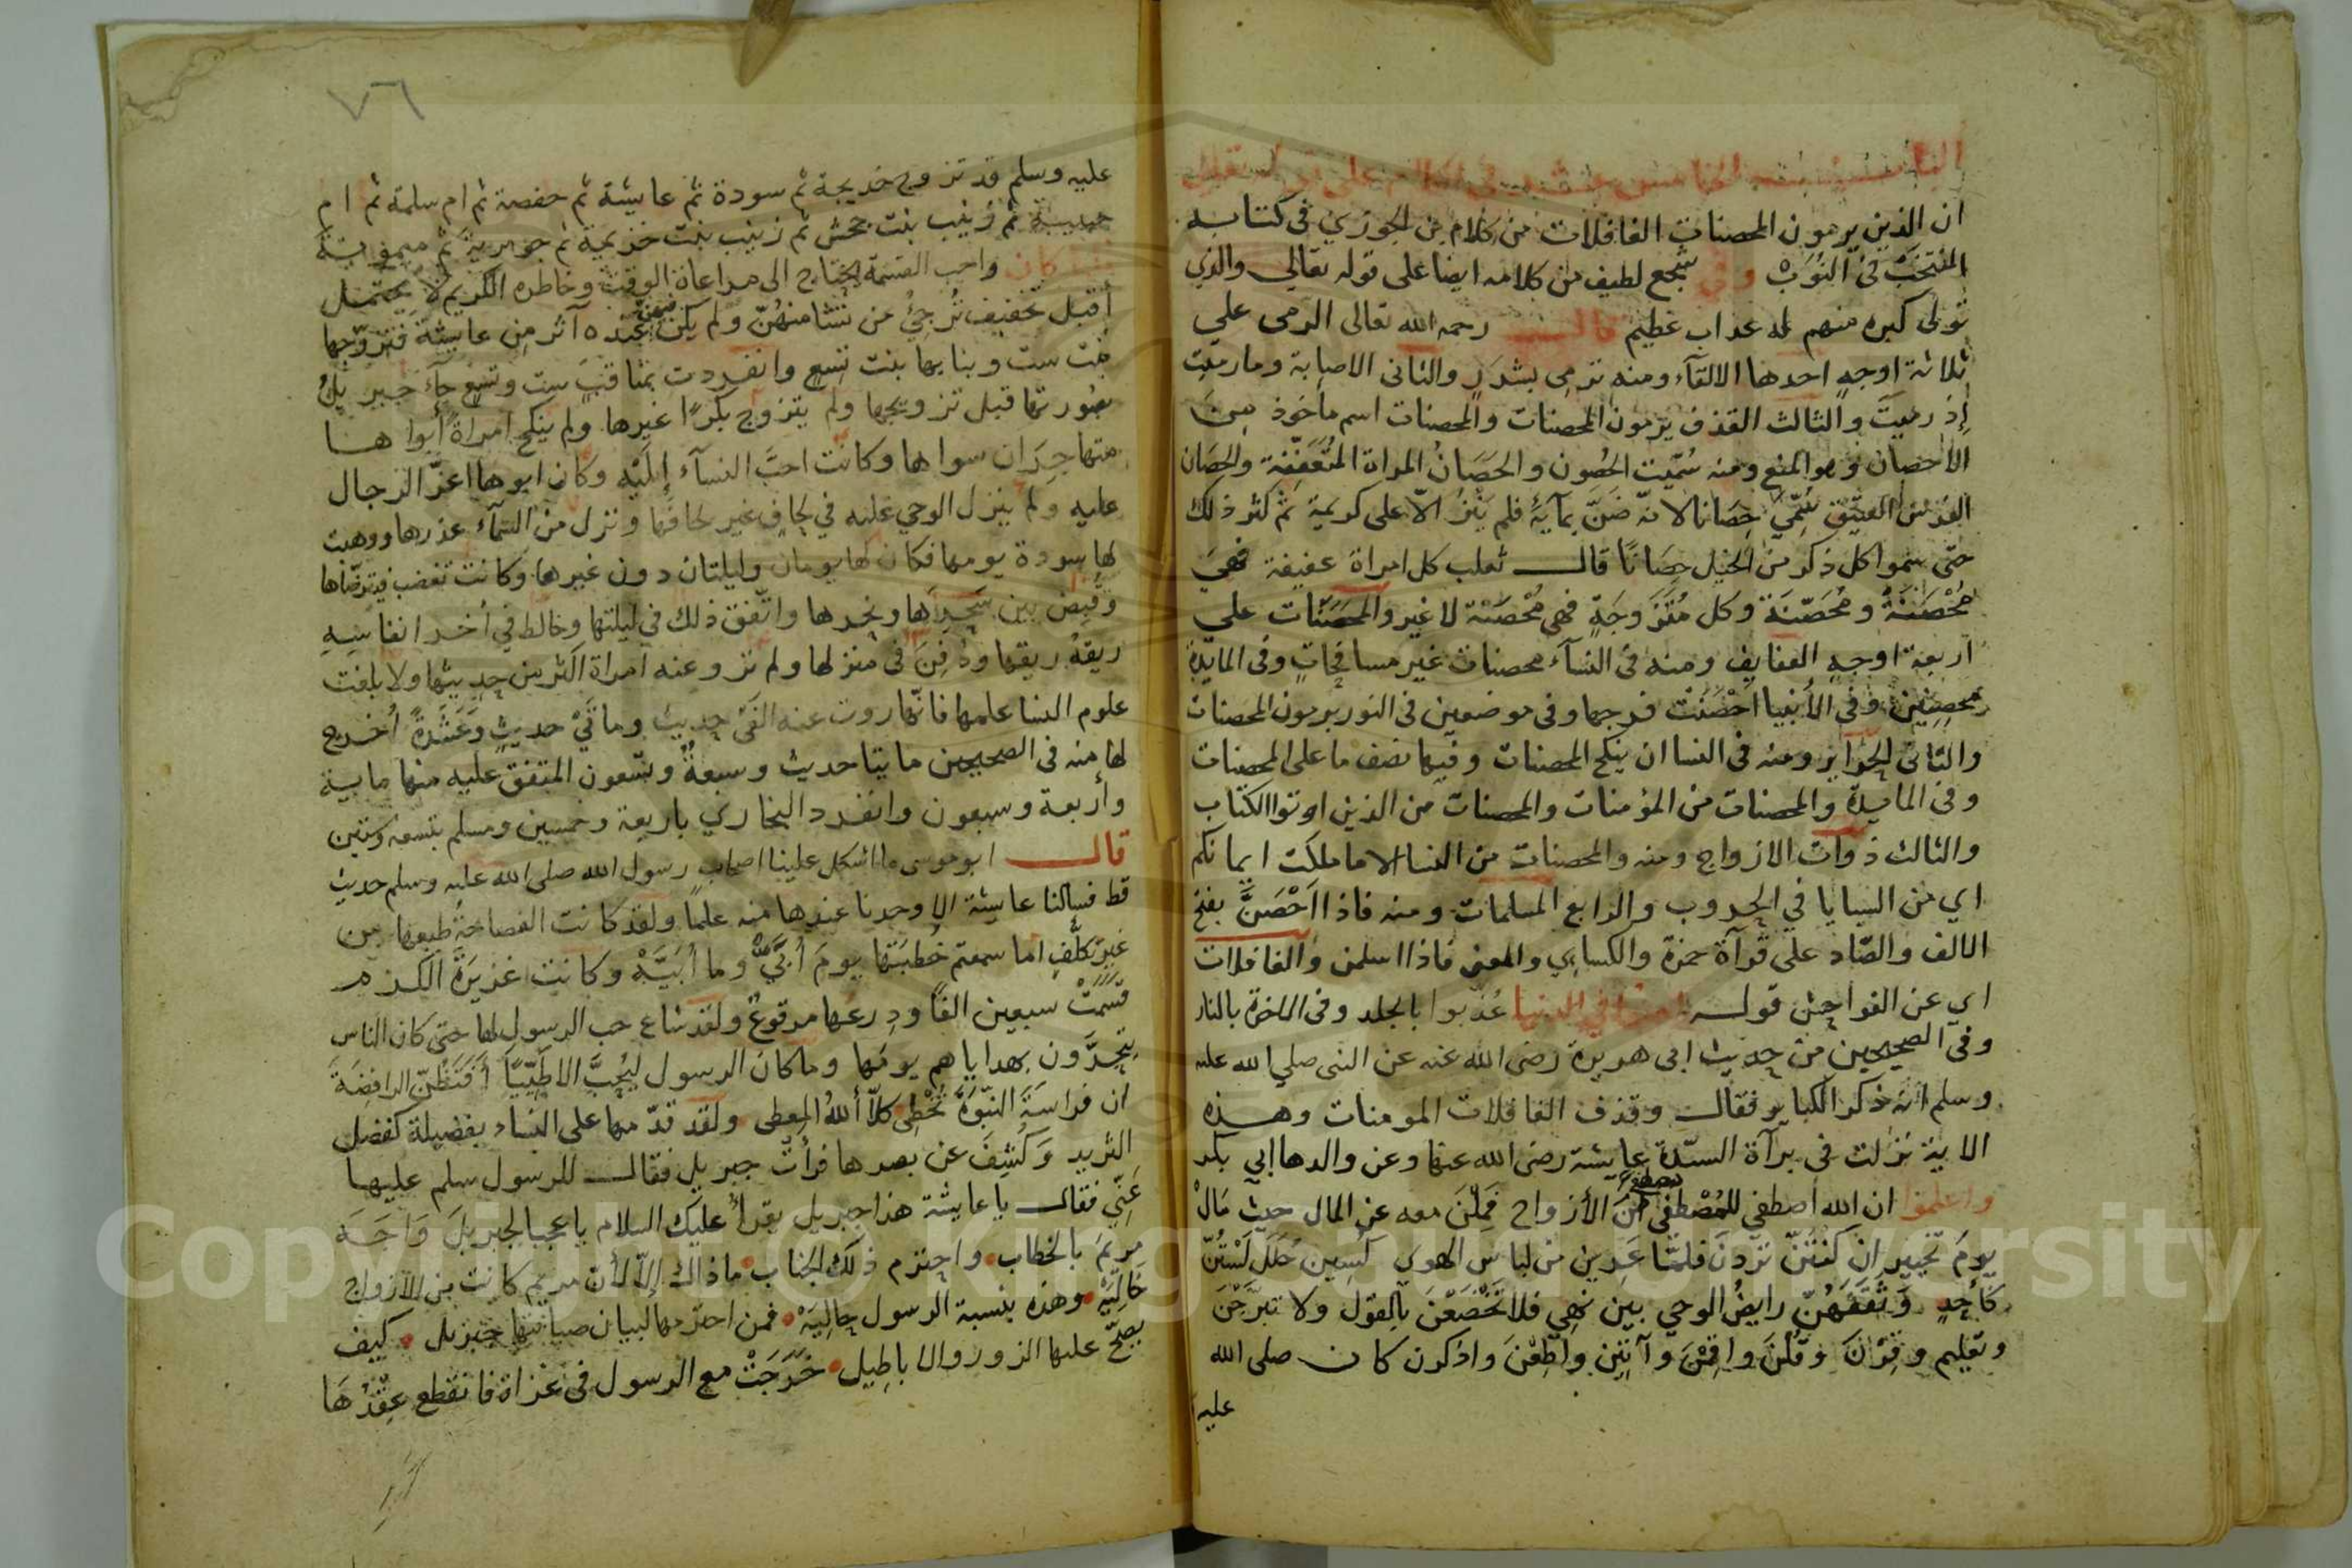 ان الذين يرمون المحصنات الغافلات من كلام بن الجوزي في كتابه
المنتخب في النوب وفي سجع لطيف من كلامه ايضا على قوله تعالي والذي
تولى كبره منهم له عذاب عظيم قال رحمه الله تعالى الرمى على
ثلاثة اوجه احدها الالقآء ومنه ترمى بشرر والثانى الاصابة وما رميت
إذ رميت والثالث القذف يرمون المحصنات والمحصنات اسم ماخوذ من
الاحصان وهو المنع ومنه سُمّيت الحُصون والحصَانُ المراة المُتَعَفِّفة والحِصَان
الفرس العتيق سُمِّيَ حِصَانا لانّه ضَنَّ بمآيهِ فلم يَنْزُ الّا على كريمة ثم كثر ذلك
حتى سموا كل ذكر من الخيل حِصَانًا قال ثعلب كل امراة عفيفة فهيَ
مُحْصَنَةٌ ومُحَصّنَة وكل مُتَزَوجَةٍ فهى مُحْصَنَة لا غير والمحصَنَات على
اربعة اوجه العفايف ومنه فى النسآء محصنات غير مسافحاتٍ وفى المايدة
محصِنِين وفى الأنبيا احْصَنَتْ فرجها وفى موضعين فى النور يرمون المحصنات
والثانى الحَرَاير ومنه فى النسا ان ينكح المحصنات وفيها نصف ما على المحصنات
وفى المايدة والمحصنات من المؤمنات والمحصنات من الذين اوتوا الكتاب
والثالث ذوات الازواج ومنه والمحصنات من النسا الا ما ملكت ايمانكم
اي من السبايا في الحروب والرابع المسلمات ومنه فاذا احْصَنَّ بفتح
الالف والصّاد على قرآة حمزة والكسايى والمعنى فاذا اسلمن والغافلات
اى عن الفواحش قوله لعنوا في الدنيا عُذّبوا بالجلد وفى الاخرة بالنار
وفى الصحيحين من حديث ابى هريرة رضى الله عنه عن النبى صلي الله عليه
وسلم انه ذكر الكباير فقال وقذف الغافلات المومنات وهذه
الاية نزلت فى برآة السيّدة عايشة رضى الله عنها وعن والدها ابي بكر
واعلموا ان الله اصطفي للمُصْطفى من الأزواج فَمِلْنَ معه عن المال حيث مَالْ
يومَ تخيير ان كنتنّ تردنَ فلمّا عَرِين من لباس الهوي كُسِين حُلَل لَسْتُنّ
كَأحدٍ وَثَقَفَهُنّ رايضُ الوحي بين نهى فلا تَخْضَعْنَ بالقول ولا تبرّجْنَ
وتعليم وقِرْنَ وقُلْنَ واقِمْنَ وآتِين واطِعْنَ واذكرن كان صلى الله
عليه
٧٦
عليه وسلم قد تزوج خديجة ثم سودة ثم عايشة ثم حفصة ثم ام سلمة ثم ام
حبيبة ثم زينب بنت جحش ثم زينب بنت خزيمة ثم جويرية ثم ميمونة
كان واجب القسمة يحتاج الى مراعاة الوقت وخاطره الكريم لا يحتمل
أقبل تخفيف تُرجِيُ من تشا منهُنّ ولم يكن فيهن عنده آثر مِن عايشة فتزوّجها
بنت ست وبنا بها بنت تِسْعٍ وانفردت بمناقب ست وتسع جآء جبريل
بصُورتها قبل تزويجها ولم يتزوج بكرًا غيرها ولم ينكح امراةً أبواها
مهاجِرَان سواها وكانت احبَّ النسآء إليْه وكان ابوها اعزّ الرجال
عليه ولم ينزل الوحي عليه في لحافٍ غير لحافها ونزل من السّمآء عذرها ووهبت
لها سودة يومها فكان لها يومان وليلتان دون غيرها وكانت تغضب فيترضّاها
وقُبِضَ بين سَحْرِهَا ونحرها واتّفق ذلك في ليلتها وخالط في أخر انفاسِهِ
ريقهُ ريقها ودُفِنَ فى منزلها ولم تروعنه امراة اكثر من حديثها ولا بلغت
علوم النسا علمها فانّها روت عنه الفَىْ حديث ومائَيْ حديثٍ وعَشَرةً أخرج
لها منه فى الصحيحين مايتا حديث وسبعةٌ وتسعون المتفق عليه منها ماية
وأربعة وسبعون وانفرد البخاري باربعة وخمسين ومسلم بتسعه وستين
قال ابوموسى ما اشكل علينا اصحاب رسول الله صلى الله عليه وسلم حديث
قط فسالنا عايشة الا وجدنا عندها منه علمًا ولقد كانت الفصاحةُ طبعها من
غير تكلُّفٍ اما سمعتم خُطبَتها يومَ أبيَّهْ وما أبَيَّهْ وكانت غزيرَةَ الكرم
قسَّمَتْ سبعين الفًا ودِرعها مرقوعٌ ولقد شاع حب الرسول لها حتى كان الناس
يتحرَّون بهداياهم يومَها وما كان الرسول ليُحِبَّ الا طَيّبًا أفَتَظنّ الرافضَة
ان فراسَةَ النبّوَة تُخْطِى كلّا ألله المعطى ولقد قدّمها على النساء بفضيلة كفضل
الثريد وَكُشِفَ عن بصرها فرأتْ جبريل فقال للرسول سلم عليها
عَنِّي فقال يا عايشة هذا جبريل يقرأُ عليك السلام يا عجبا لجبريلَ وَاجَهَ
مريَمَ بالخطاب واحترم ذلك الجناب ماذاك إلاّ لأن مريم كانت من الازواج
خَالِيَةْ وهذه بنسبة الرسول حالِيَهْ فمن احترمها لبيان صيانتها جبريل كيف
يصحّ عليها الزور والاباطيل خَرَجَتْ مع الرسول فى غزاة فانقطع عِقْدُهَا